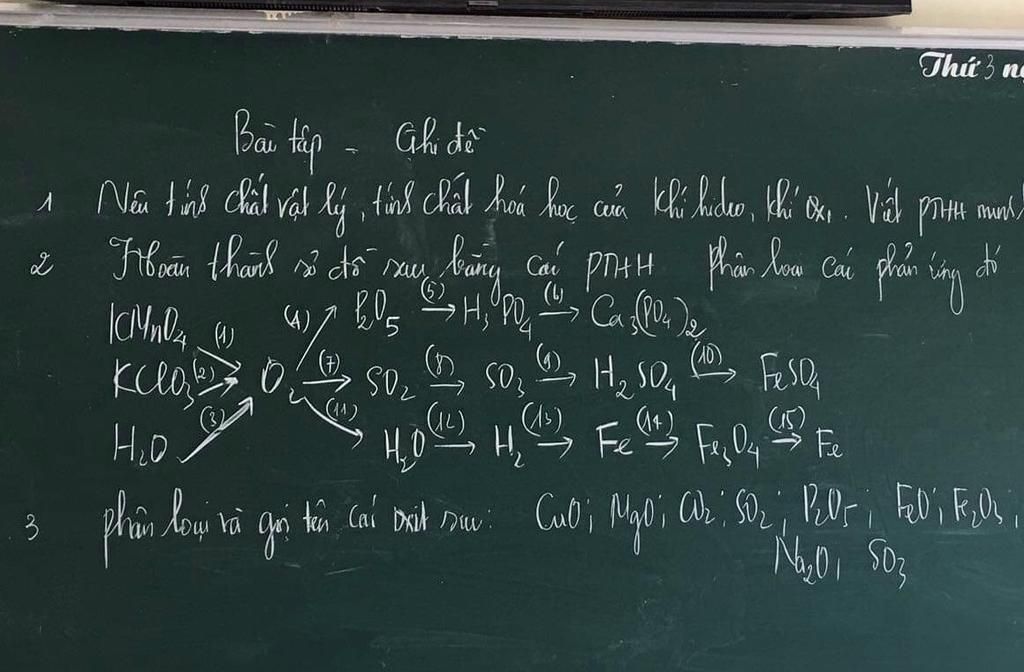 Thứ 3 ng
Bài tập - Ghi đề
1 Nêu tính chất vật lý, tính chất hoá học của khí hidro, khí oxi. Viết PTHH minh
2 Hoàn thành sơ đồ sau bằng các PTHH phân loại các phản ứng đó
KMnO4 (1) (4) P2O5 (5) → H3PO4 (6) → Ca3(PO4)2
KClO3 (2) → O2 (7) → SO2 (8) → SO3 (9) → H2SO4 (10) → FeSO4
H2O (3) (11) H2O (12) → H2 (13) → Fe (14) → Fe3O4 (15) → Fe
3 phân loại và gọi tên các oxit sau: CuO; MgO; CO2; SO2; P2O5; FeO; Fe2O3;
Na2O, SO3